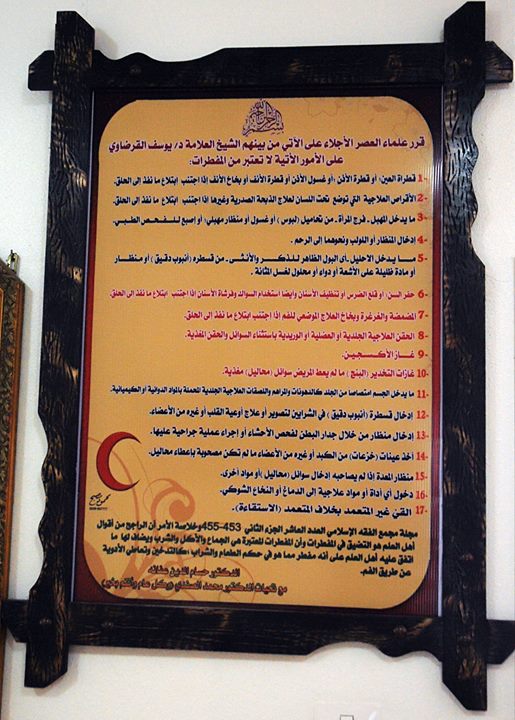 بسم الله الرحمن الرحيم
قرر علماء العصر الأجلاء على الآتي من بينهم الشيخ العلامة د/ يوسف القرضاوي
على الأمور الآتية لا تعتبر من المفطرات:
1- قطراة العين، أو قطرة الأذن ،أو غسول الأذن أو قطرة الأنف أو بخاخ الأنف إذا اجتنب ابتلاع ما نفذ إلى الحلق.
2- الأقراص العلاجية التي توضع تحت اللسان لعلاج الذبحة الصدرية وغيرها إذا اجتنب ابتلاع ما نفذ إلى الحلق.
3- ما يدخل المهبل ـ فرج المرأة ـ من تحاميل (لبوس) أو غسول أو منظار مهبلي، أو إصبع للفحص الطبي.
4- إدخال المنظار أو اللولب ونحوهما إلى الرحم .
5- ما يدخل الاحليل ـ أي البول الظاهر للذكر والأنثى ـ من قسطره (أنبوب دقيق) أو منظار
أو مادة ظليلة على الأشعة أو دواء أو محلول لغسل المثانة .
6- حفر السن، أو قلع الضرس أو تنظيف الأسنان وأيضا استخدام السواك وفرشاة الأسنان إذا اجتنب ابتلاع ما نفذ إلى الحلق.
7- المضمضة والغرغرة وبخاخ العلاج الموضعي للفم إذا اجتنب ابتلاع ما نفذ إلى الحلق.
8- الحقن العلاجية الجلدية أو العضلية أو الوريدية باستثناء السوائل والحقن المغذية.
9- غـاز الأكـسـجـيـن.
10- غازات التخدير (البنج) ما لم يعط المريض سوائل (محاليل) مغذية.
11- ما يدخل الجسم امتصاصا من الجلد كالدهونات والمراهم واللصقات العلاجية الجلدية المحملة بالمواد الدوائية أو الكيميائية.
12- إدخال قسطرة (أنبوب دقيق) في الشرايين لتصوير أو علاج أوعية القلب أو غيره من الأعضاء.
13- إدخال منظار من خلال جدار البطن لفحص الأحشاء أو إجراء عملية جراحية عليها.
14- أخذ عينات (خزعات) من الكبد أو غيره من الأعضاء ما لم تكن مصحوبة بإعطاء محاليل.
15- منظار المعدة إذا لم يصاحبه إدخال سوائل (محاليل) أو مواد أخرى.
16- دخول أي أداة أو مواد علاجية إلى الدماغ أو النخاع الشوكي.
17- القئ غير المتعمد بخلاف المتعمد (الاستقاءة).
مجلة مجمع الفقه الإسلامي العدد العاشر الجزء الثاني 453-455 وخلاصة الأمر أن الراجح من أقوال
أهل العلم هو التضييق في المفطرات وأن المفطرات المعتبرة هي الجماع والأكل والشرب ويضاف لها ما
اتفق عليه أهل العلم على أنه مفطر مما هو في حكم الطعام والشراب ،كالتدخين وتعاطي الأدوية
عن طريق الفم.
الدكتور حسام الدين عفانه
مع تحيات الدكتور محمد الصفدي وكل عام وأنتم بخير